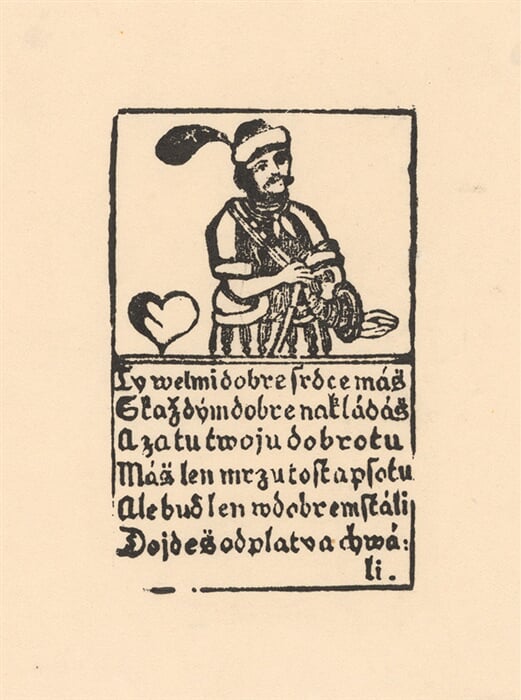 Ty welmi dobre srdce máš
S každým dobre nakládáš
A za tu twoju dobrotu
Máš len mrzutost a psotu
Ale buď len w dobrem stáli
Dojdeš odplat y a chwá:
li.